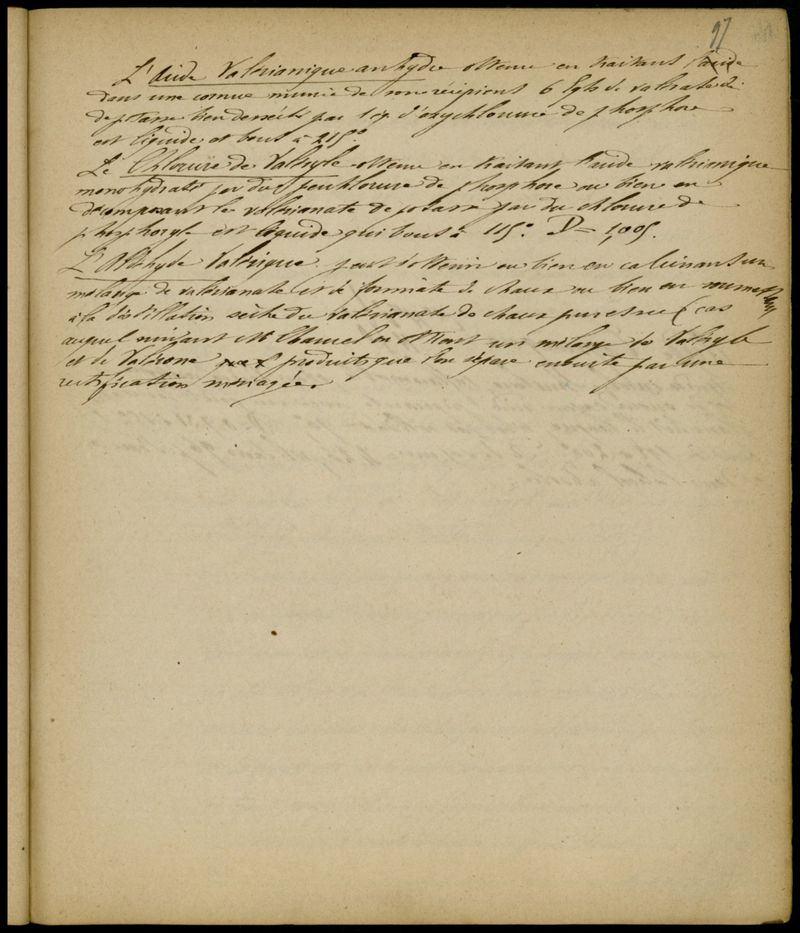 97
L'Acide Valérianique anhydre obtenu en traitant l'acide
dans une cornue munie de son récipient 6 de valérate de
de potasse bien desséché par 1 ép d'oxychlorure de phosphore
est liquide et bout à 215°
Le Chlorure de Valéryle obtenu en traitant l'acide valérianique
monohydraté par du perchlorure de phosphore ou bien en
décomposant le valérianate de potasse par du chlorure de
phosphoryle est liquide qui bout à 115°. D = 1,005.
L'Aldéhyde Valérique peut s'obtenir ou bien en calcinant un
mélange de valérianate et de formiate de chaux ou bien en
à la distillation sèche du valérianate de chaux pur et sec (cas
auquel suivant Mr Chancel on obtient un mélange de Valéryle
et de Valérone produits que l'on sépare ensuite par une
rectification ménagée.